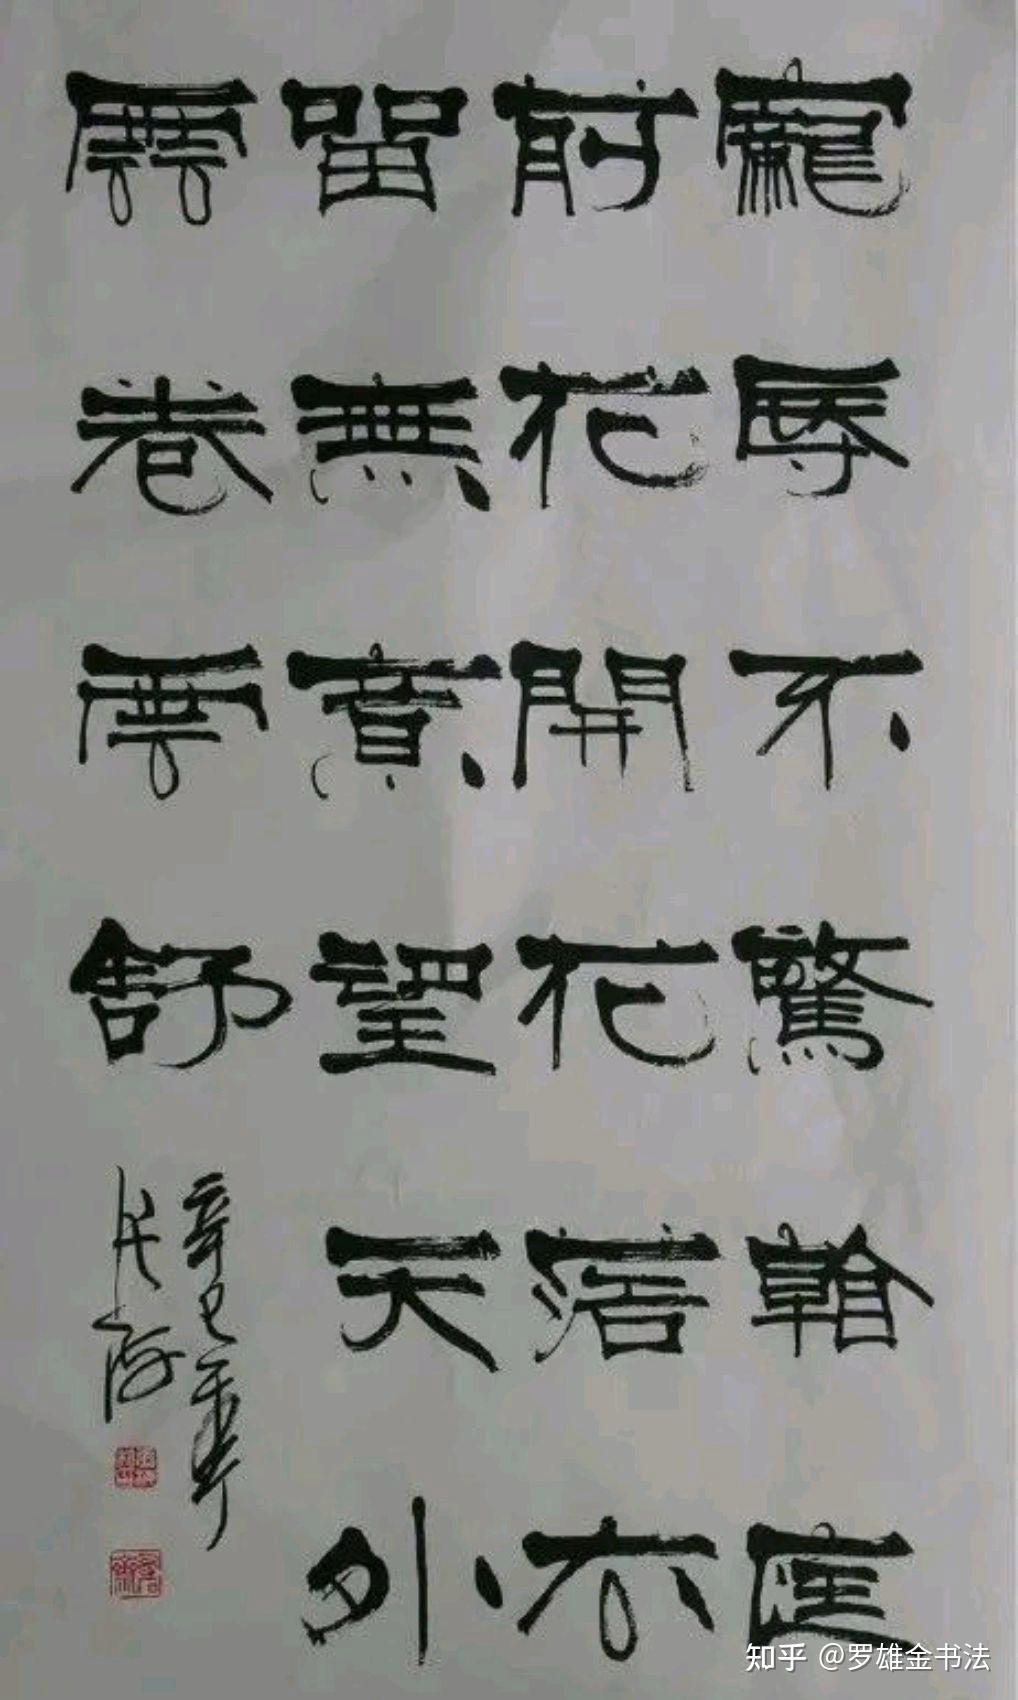 寵辱不驚看庭
前花開花落去
留無意望天外
雲卷雲舒
辛巳
张海
知乎 @罗雄金书法